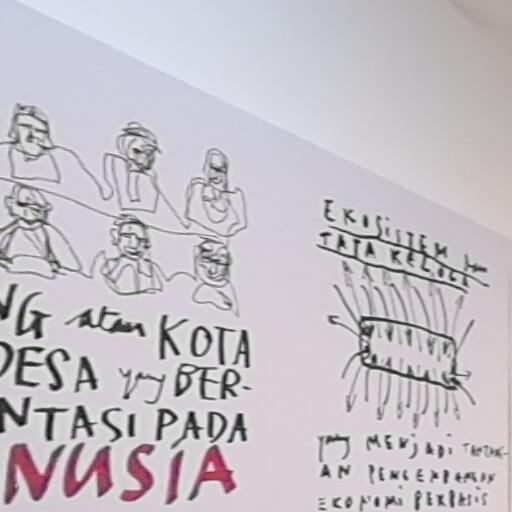 NG atau KOTA
DESA yang BER-
NTASI PADA
NUSIA
EKOSISTEM dan
TATA KELOLA
yang MENJADI TANTANG-
AN PENGEMBANGAN
EKONOMI BERBASIS